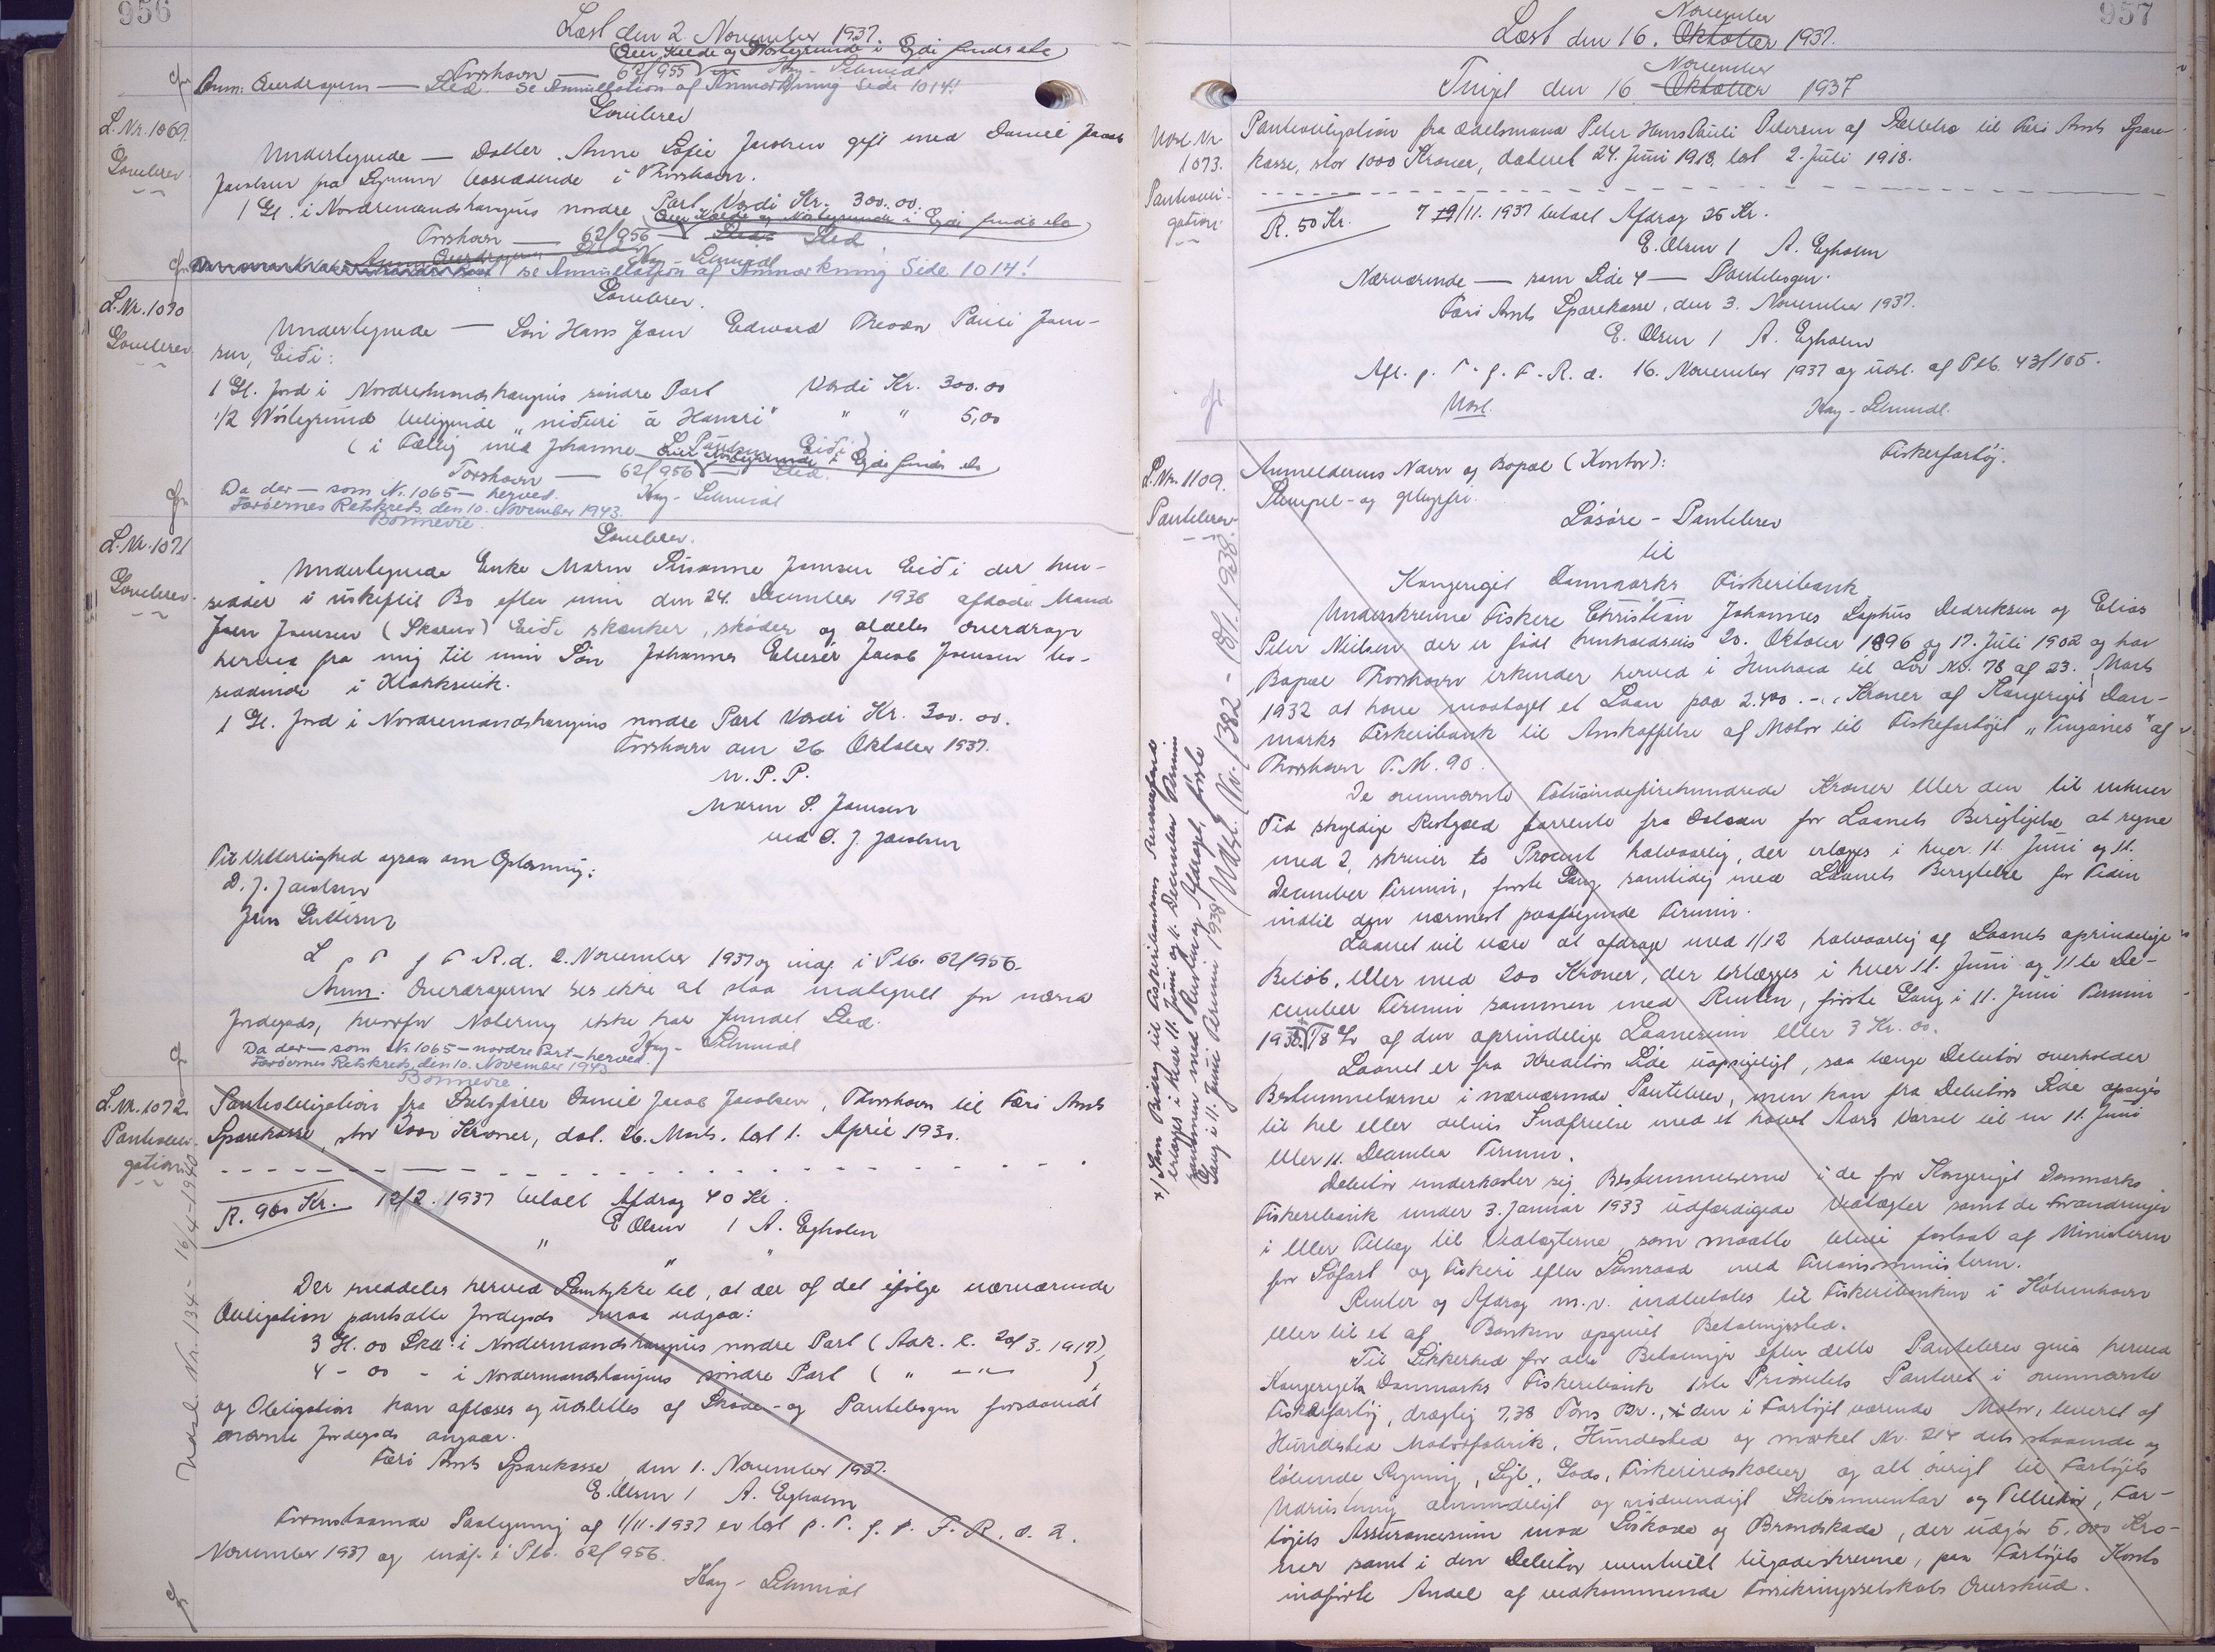 956
Læst den 2 November 1937.
Over Hælde og Nöstegrunde i Ejde findes ikke
Torshavn — 62/955 Kay-Schmidt
Anm: Overdrageren — Sted. Se Annullation af Anmærkning Side 1014!
L.Nr. 1069.
Gavebrev
Gavebrev
Undertegnede — Datter Anne Sofie Jacobsen gift med Daniel Jacob
Jacobsen fra bosiddende i Thorshavn.
1 Gl. i Nordremandshaugins nordre Part Værdi Kr. 300.00.
Torshavn — 62/956 — Sted
Kay-Schmidt
se Annullation af Anmærkning Side 1014!
L.Nr. 1070
Gavebrev
Gavebrev.
Undertegnede — Sön Hans Joen Edward Pauli Joen-
sen, Eiði:
1 Gl. Jord i Nordremandshaugins söndre Part Værdi Kr. 300.00
1/2 Nöstegrund beliggende "niðuri á Hamri" " " 5,00
(i Fællig med Johanne S. Poulsen Eiði)
Torshavn — 62/956 — Sted.
Kay-Schmidt
Da der — som Nr. 1065 — herved.
Færøernes Retskreds, den 10. November 1943.
Bonnevie.
L.Nr. 1071
Gavebrev
Gavebrev.
Undertegnede Enke Maren Susanne Joensen Eiði der hen-
sidder i uskiftet Bo efter min den 24. December 1936 afdöde Mand
Joen Joensen (Skarun) Eiði skænker, sköder og aldeles overdrager
herved fra mig til min Sön Johannes Elieser Jacob Joensen bo-
siddende i Klakksvik.
1 Gl. Jord i Nordremandshaugins nordre Part Værdi Kr. 300.00.
Torshavn den 26 Oktober 1937.
m. p. P.
Maren S. Joensen
ved D. J. Jacobsen
Til Vitterlighed ogsaa om Oplæsning:
D. J. Jacobsen
Jens Guttesen
L p T f F R. d. 2. November 1937 og indf. i Ptb. 62/956.
Anm: Overdrageren ses ikke at staa indtegnet for nævnte
Jordegods, hvorfor Notering ikke har fundet Sted.
Kay-Schmidt
Da der — som Nr. 1065 — nordre Part — herved.
Færøernes Retskreds, den 10. November 1943
Bonnevie
L.Nr. 1072
Pantobli-
gation
Udsl. Nr. 134 - 16/4-1940
Pantobligation fra Skibsfører Daniel Jacob Jacobsen, Thorshavn til Færø Amts
Sparekasse, stor 2000 Kroner, dat. 26. Marts. læst 1. April 1930.
R. 960 Kr. 12/2. 1937 betalt Afdrag 40 Kr.
E Olsen / A. Egholm
" " "
Der meddeles herved Samtykke til, at der af det ifølge nærværende
Obligation pantsatte Jordegods maa udgaa:
3 Gl. 00 Skd. i Nordermandshaugins nordre Part (Adk. l. 20/3. 1917),
4 - 00 - i Nordermandshaugins söndre Part ( " - " - ),
og Obligation kan aflæses og udslettes af Sköde- og Pantebogen forsaavidt
nævnte Jordegods angaar.
Færø Amts Sparekasse den 1. November 1937.
E. Olsen / A. Egholm
Foranstaaende Paategning af 1/11. 1937 er læst p. T. f. F. R. d. 2.
November 1937 og indf. i Ptb. 62/956.
Kay-Schmidt
957
Læst den 16. Oktober November 1937.
Tinget den 16 Oktober November 1937
Udsl. Nr
1073.
Pantobli-
gation
Pantobligation fra Ødelsmand Peter Hans Pauli Petersen af til Færø Amts Spare-
kasse, stor 1000 Kroner, dateret 24. Juni 1918, læst 2. Juli 1918.
R. 50 Kr. 19/11. 1937 betalt Afdrag 25 Kr.
E. Olsen / A. Egholm
Nærværende — som Side 4 — Pantebogen.
Færø Amts Sparekasse, den 3. November 1937.
E. Olsen / A. Egholm
Afl. p. T. f. F. R. d. 16. November 1937 og udsl. af Ptb. 43/105.
Udsl. Kay-Schmidt.
L.Nr. 1109.
Pantebrev
Anmelderens Navn og Bopæl (Kontor): Fiskerfartöj.
Stempel- og gebyrfri.
Lösöre - Pantebrev
til
Kongeriget Danmarks Fiskeribank
Underskrevne Fiskere Christian Johannes Sophus Dedriksen og Elias
Peter Nielsen der er födt henholdsvis 20. Oktober 1896 og 17. Juli 1902 og har
Bopæl Thorshavn erkender herved i Henhold til Lov Nr. 78 af 23. Marts
1932 at have modtaget et Laan paa 2.400.-. Kroner af Kongeriget Dan-
marks Fiskeribank til Anskaffelse af Motor til Fiskefartöjet "Tinganes" af
Thorshavn T.N. 90.
De ovennævnte Totusindefirehundrede Kroner eller den til enhver
Tid skyldige Restgæld forrentes fra Datoen for Laanets Berigtigelse at regne
med 2, skriver to Procent halvaarlig, der erlægges i hver 11. Juni og 11.
December Termin, förste Gang samtidig med Laanets Berigtelse for Tiden
indtil den nærmest paafölgende Termin.
Laanet vil være at afdrage med 1/12 halvaarlig af Laanets oprindelige
Belöb, eller med 200 Kroner, der erlægges i hver 11. Juni og 11te De-
cember Termin sammen med Renten, förste Gang i 11. Juni Termin
1938. +) 1/8 % af den oprindelige Laanesum eller 3 Kr. 00.
Laanet er fra Kreditors Side uopsigeligt, saa længe Debitor overholder
Bestemmelserne i nærværende Pantebrev, men kan fra Debitors Side opsiges
til hel eller delvis Indfrielse med et halvt Aars Varsel til en 11. Juni
eller 11. December Termin.
Debitor underkaster sig Bestemmelserne i de for Kongeriget Danmarks
Fiskeribank under 3. Januar 1933 udfærdigede Vedtægter samt de Forandringer
i eller Tillæg til Vedtægterne som maatte blive fastsat af Ministeren
for Söfart og Fiskeri efter Samraad med Finansministeren.
Renter og Afdrag m.v. indbetales til Fiskeribanken i Köbenhavn
eller til et af Banken opgivet Betalingssted.
Til Sikkerhed for alle Betalinger efter dette Pantebrev gives herved
Kongeriget Danmarks Fiskeribank 1ste Prioritets Panteret i ovennævnte
Fiskefartöj, drægtig 7,38 Tons Br., i den i Fartöjet værende Motor, leveret af
Hundested Motorfabrik, Hundested og mærket Nr. 214 dets staaende og
löbende Rejsning, Sejl, Gods, Fiskeriredskaber og alt övrigt til Fartöjets
Udrustning almindeligt og nödvendigt Skibsinventar og Tilbehör, Far-
töjets Assurancesum mod Söskade og Brandskade, der udgör 5.000 Kro-
ner samt i den Debitor eventuelt tilgodeskrevne, paa Fartöjets Konto
indförte Andel af vedkommende Forsikringsselskabs Overskud.
+) Som Bidrag til Fiskeribankens Reservefond
erlægges i hver 11. Juni og 11. December Termin
sammen med Renten og Afdraget, förste
Gang i 11. Juni Termin 1938
Udsl. Nr. 1382 - 18/1. 1938.